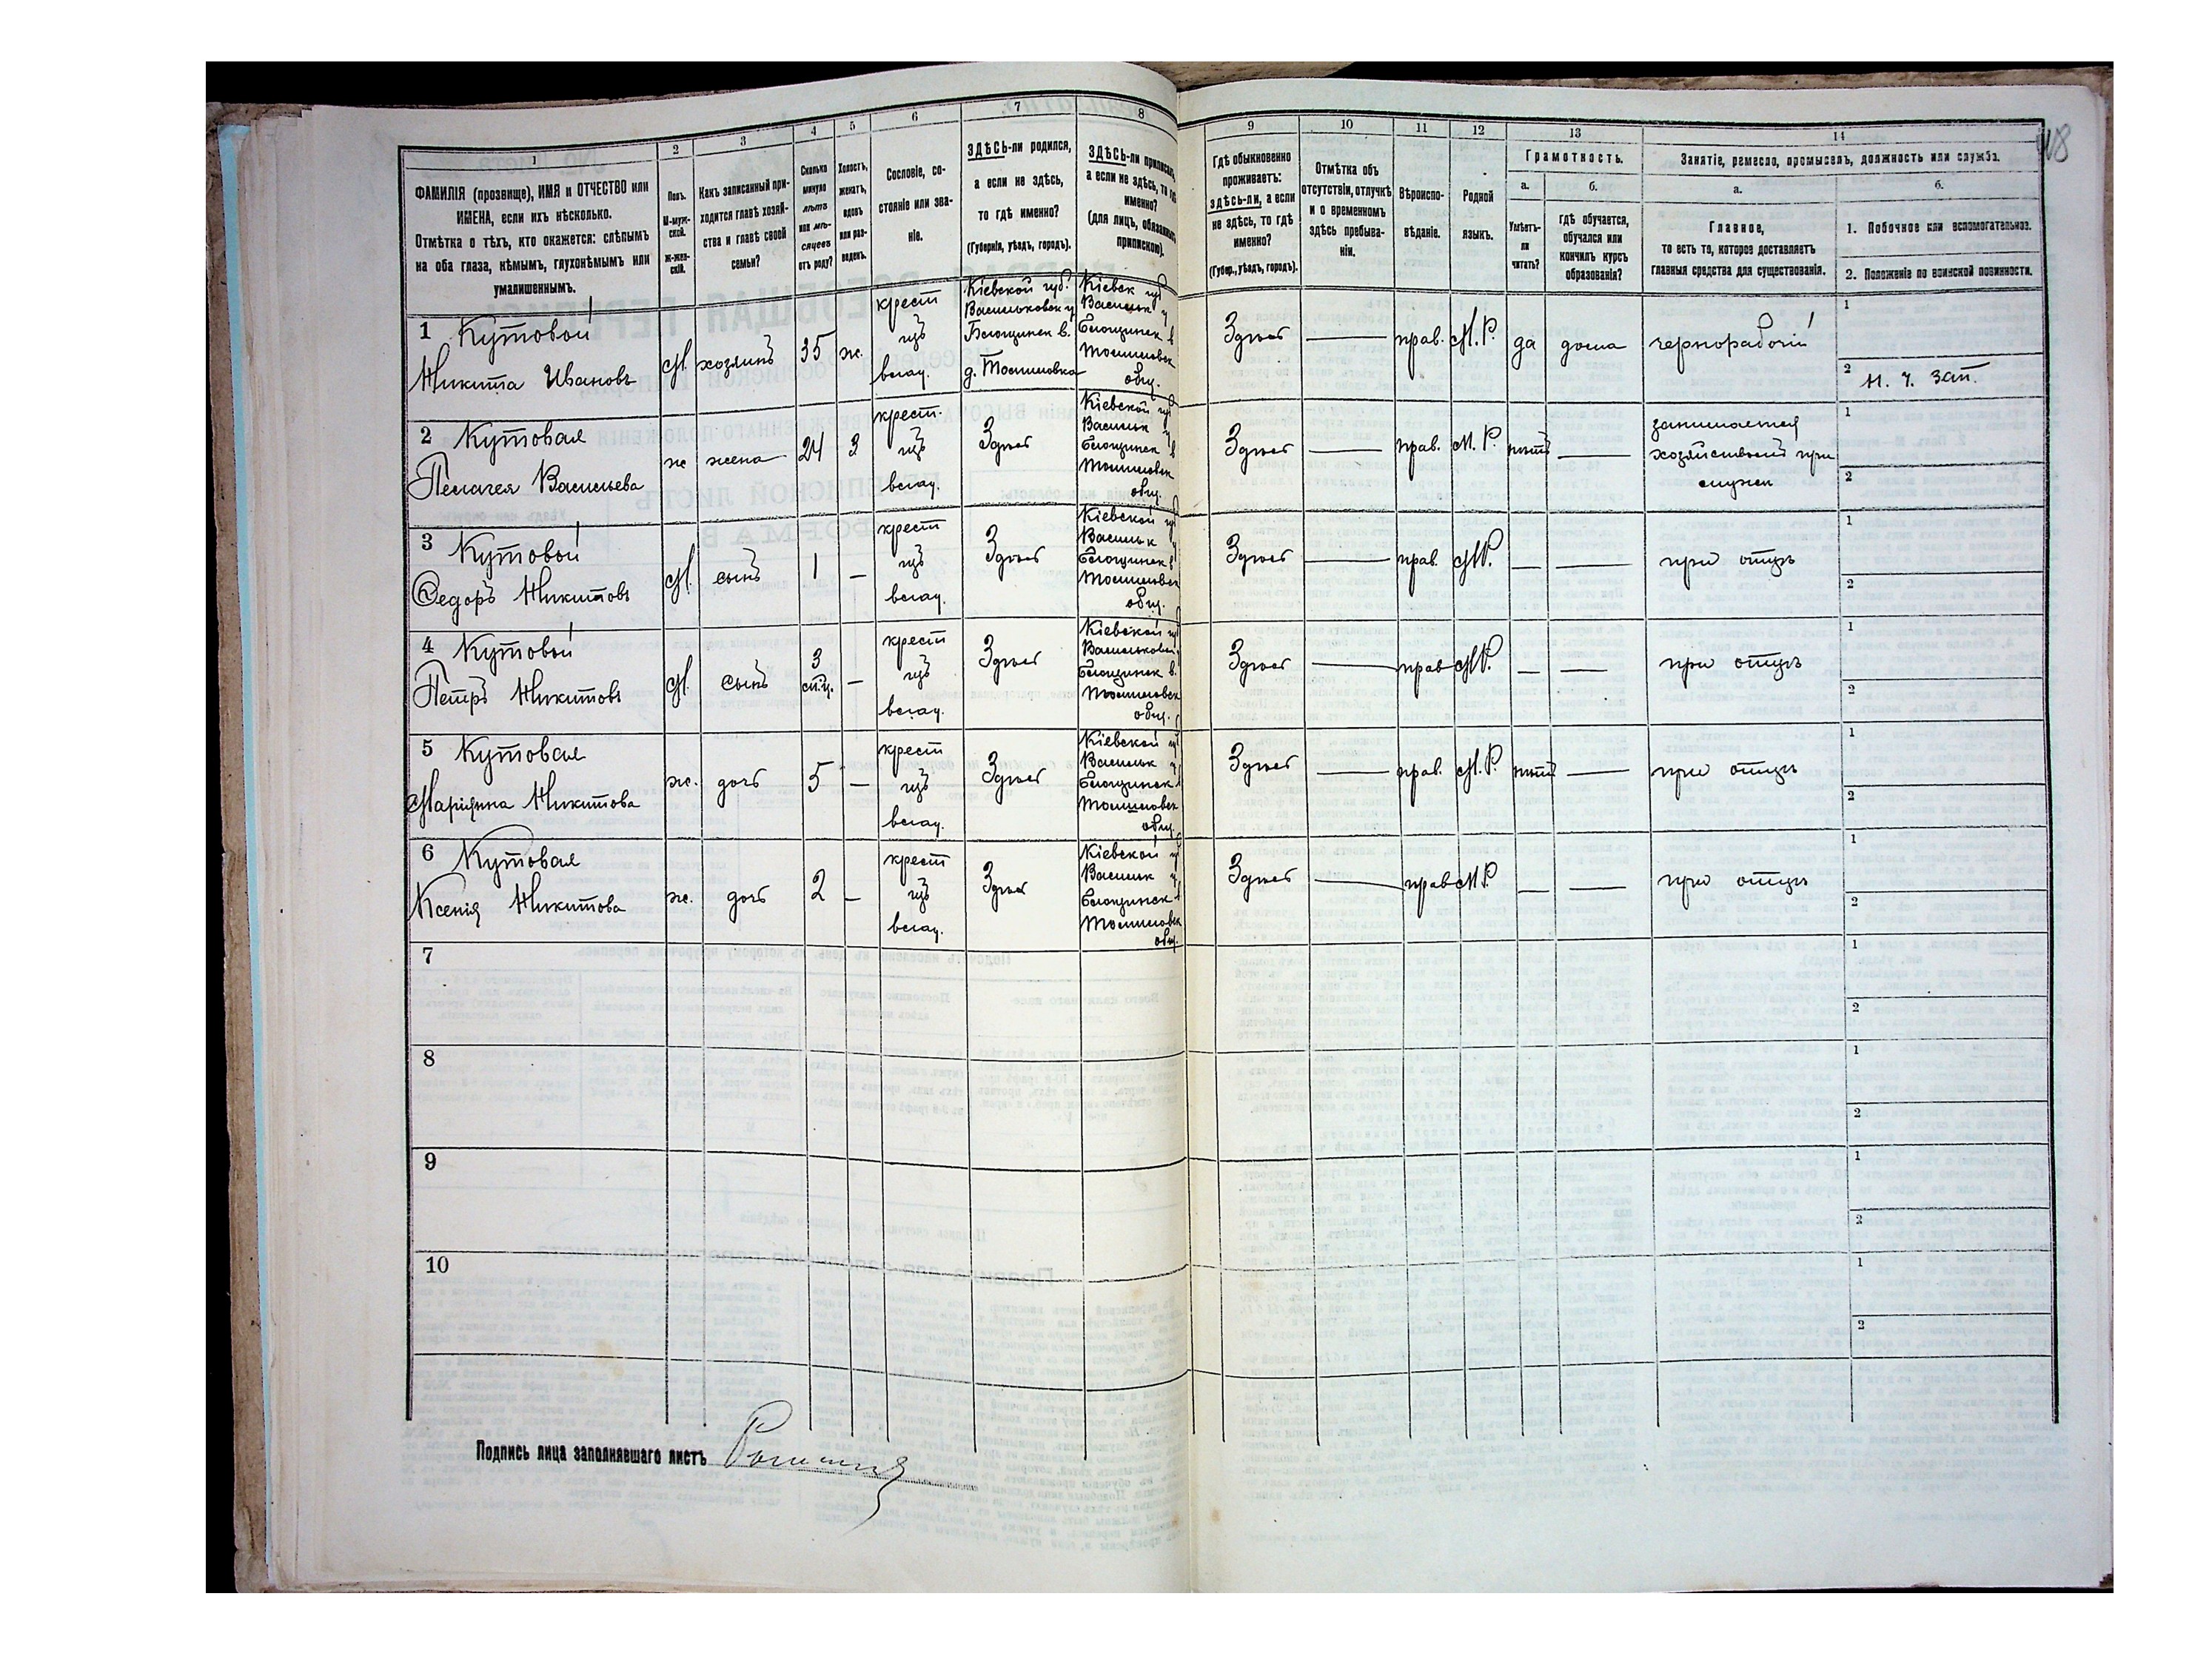 118
1 2 3 4 5 6 7 8 9 10 11 12 13 14
ФАМИЛІЯ (прозвище), ИМЯ и ОТЧЕСТВО или
ИМЕНА, если ихъ нѣсколько.
Отмѣтка о тѣхъ, кто окажется: слѣпымъ
на оба глаза, нѣмымъ, глухонѣмымъ или
умалишеннымъ.
Полъ.
М-муж-
ской.
Ж-жен-
скій.
Какъ записанный при-
ходится главѣ хозяй-
ства и главѣ своей
семьи?
Сколько
минуло
лѣтъ
или мѣ-
сяцевъ
отъ роду?
Холостъ,
женатъ,
вдовъ
или раз-
веденъ.
Сословіе, со-
стояніе или зва-
ніе.
ЗДѢСЬ-ли родился,
а если не здѣсь,
то гдѣ именно?
(Губернія, уѣздъ, городъ).
ЗДѢСЬ-ли приписанъ,
а если не здѣсь, то гдѣ
именно?
(для лицъ, обязанныхъ
припискою).
Гдѣ обыкновенно
проживаетъ:
здѣсь-ли, а если
не здѣсь, то гдѣ
именно?
(Губер., уѣздъ, городъ).
Отмѣтка объ
отсутствіи, отлучкѣ
и о временномъ
здѣсь пребыва-
ніи.
Вѣроиспо-
вѣданіе.
Родной
языкъ.
Грамотность.
а.
Умѣетъ-
ли
читать?
б.
гдѣ обучается,
обучался или
кончилъ курсъ
образованія?
Занятіе, ремесло, промыселъ, должность или служба.
а.
Главное,
то есть то, которое доставляетъ
главныя средства для существованія.
б.
1. Побочное или вспомогательное.
2. Положеніе по воинской повинности.
1 Кутовой
Никита Ивановъ
М. хозяинъ 35 ж.
крест
изъ
влад.
Кіевской губ.
Васильковск у
д.
Кіевск губ
Васильк у
общ.
Здѣсь — прав. М.Р. да дома чернорабочій
1
2 н. ч. зап.
2 Кутовая
Пелагея Васильева
ж жена 24 З
крест.
изъ
влад.
Здѣсь
Кіевской губ
Васильк у
общ.
Здѣсь — прав. М.Р. нѣтъ —
занимается
хозяйствомъ при
1
2
3 Кутовой
Федоръ Никитовъ
М. сынъ 1 —
крест
изъ
влад.
Здѣсь
Кіевской губ
Васильк у
общ.
Здѣсь — прав. МР. — — при отцѣ
1
2
4 Кутовой
Петръ Никитовъ
М. сынъ 3 —
крест
изъ
влад.
Здѣсь
Кіевской губ
общ.
Здѣсь — прав МР. — — при отцѣ
1
2
5 Кутовая
Никитова
ж. дочь 5 —
крест
изъ
влад.
Здѣсь
Кіевской губ
Васильк у
общ.
Здѣсь — прав. М.Р. нѣтъ — при отцѣ
1
2
6 Кутовая
Ксенія Никитова
ж. дочь 2 —
крест
изъ
влад.
Здѣсь
Кіевской губ
Васильк у
общ.
Здѣсь — прав М.Р. — — при отцѣ
1
2
7
1
2
8
1
2
9
1
2
10
1
2
Подпись лица заполнявшаго листъ